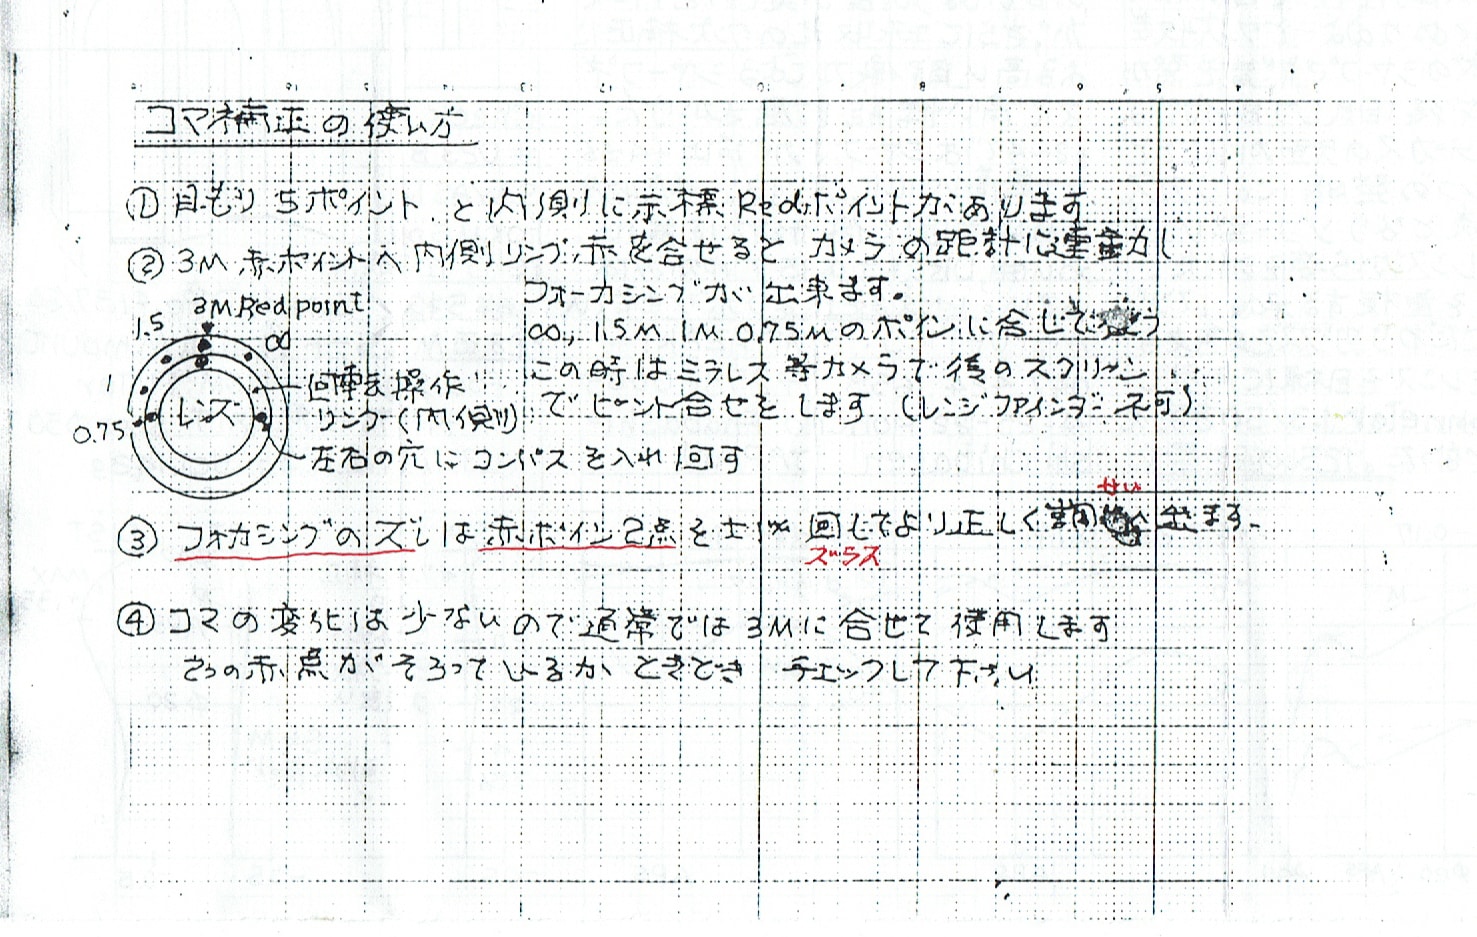 コマ補正の使い方
① 目もり 5ポイント、と内側に示標Redポイントがあります
② 3M 赤ポイントへ内側リング赤を合せると カメラの距計に連動し
フォーカシングが出来ます。
∞, 1.5M 1M 0.75Mのポインに合じて使う
この時はミラレス等カメラで後のスクリーン
でピント合せをします (レンジファインダー 不可)
3M.Red point
1.5
∞
1
0.75
レンズ
回転操作
リング(内側)
左右の穴にコンパスを入れ回す
③ フォカシングのズレは赤ポイン2点を 回してより正しく調 出ます。
せい
ズラス
④ コマの変化は少ないので通常では3Mに合せて使用します
2つの赤点がそろっているか ときどき チェックして下さい